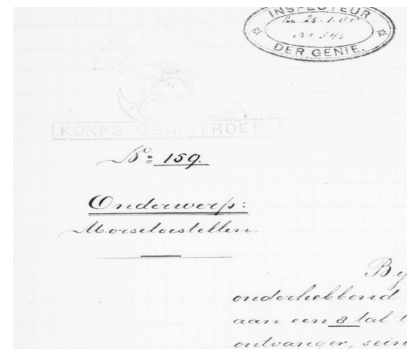 INSPECTEUR
DER GENIE.
KORPS GENIETROEPEN
Nº 159.
Onderwerp:
Morsetoestellen.
By
onderhebbend
aan een 8 tal t
ontvanger, sein